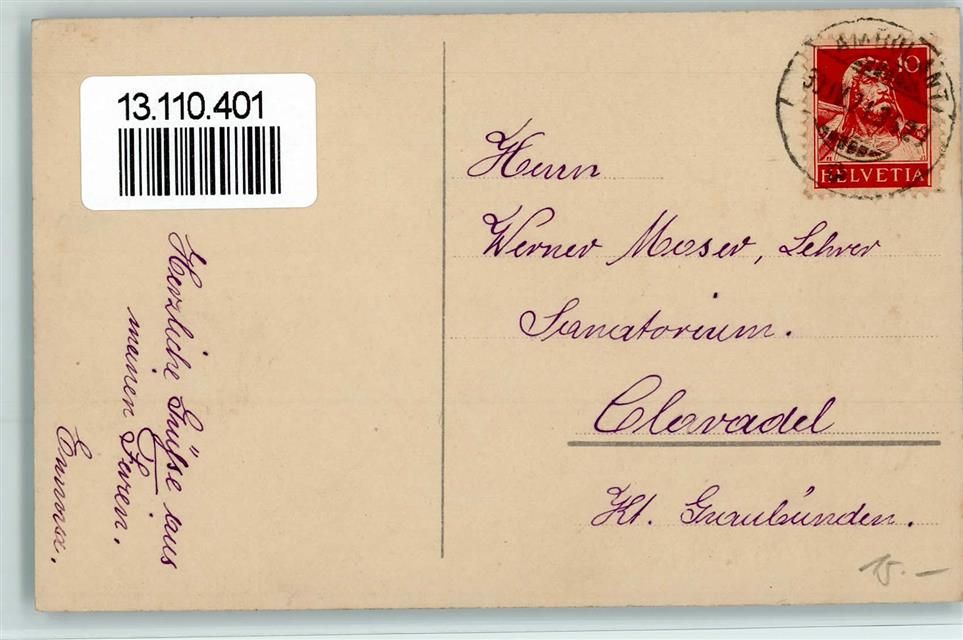 13.110.401
AMBULANT
10
HELVETIA
Herrn
Werner Moser, Lehrer
Sanatorium.
Clavadel
Kt. Graubünden.
Herzliche Grüsse aus
meinen Ferien.
Emma.
15.-